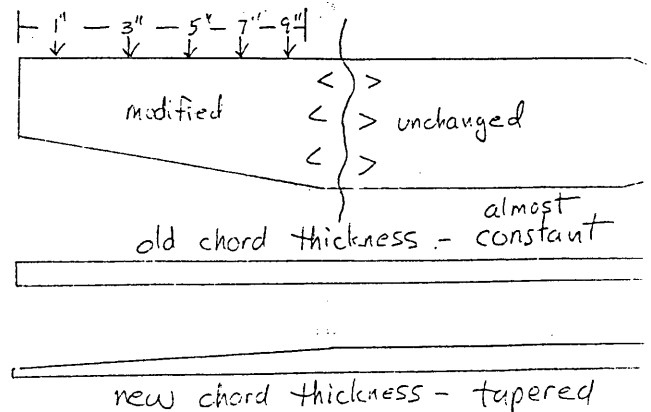 1" - 3" - 5" - 7" - 9"
modified
unchanged
old chord thickness - almost constant
new chord thickness - tapered